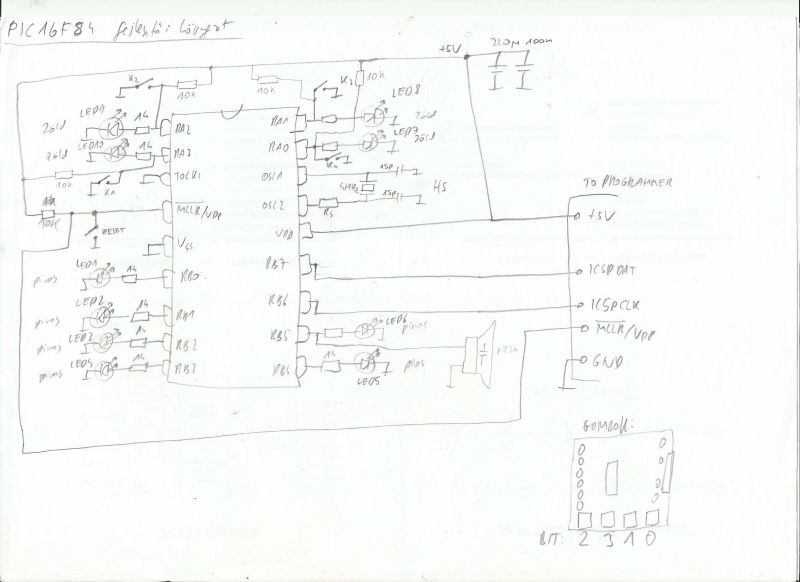 PIC16F84 fejlesztői környezet
+5V 220µ 100n
K2 10k 10k K3 10k LED8
LED9 1k RA2 RA1 zöld
zöld LED10 1k RA3 RA0 LED7 zöld
zöld K4
10k K1 TOCK1 OSC1 15P
4MHz HS
10k MCLR/VPP OSC2 RS 15P
RESET VDD
VSS
piros LED1 1k RB0 RB7
piros LED2 1k RB1 RB6
piros LED3 1k RB2 RB5 LED6 piros
piros LED4 1k RB3 RB4 1k LED5 piros
piezo
TO PROGRAMMER
+5V
ICSPDAT
ICSPCLK
MCLR/VPP
GND
GOMBOK:
BIT: 2 3 1 0